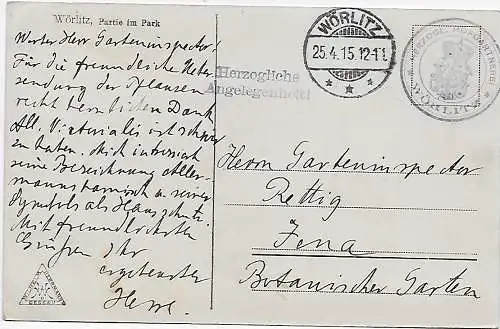 Wörlitz, Partie im Park
Werter Herr Garteninspector!
Für die freundliche Ueber-
sendung der Pflanzen
recht herzlichen Dank
All. Victorialis ist schwer
zu haben. Mich interessiert
seine Bezeichnung Aller-
mannsharnisch u. seine
Symbols als Hausschutz.
Mit freundlichsten
Grüßen Ihr
ergebenster
Herre.
Herzogliche
Angelegenheit!
WÖRLITZ
25.4.15.12-1
HERZOGL. HOFGÄRTNEREI
WÖRLITZ
Herrn Garteninspector
Rettig
Jena
Botanischer Garten